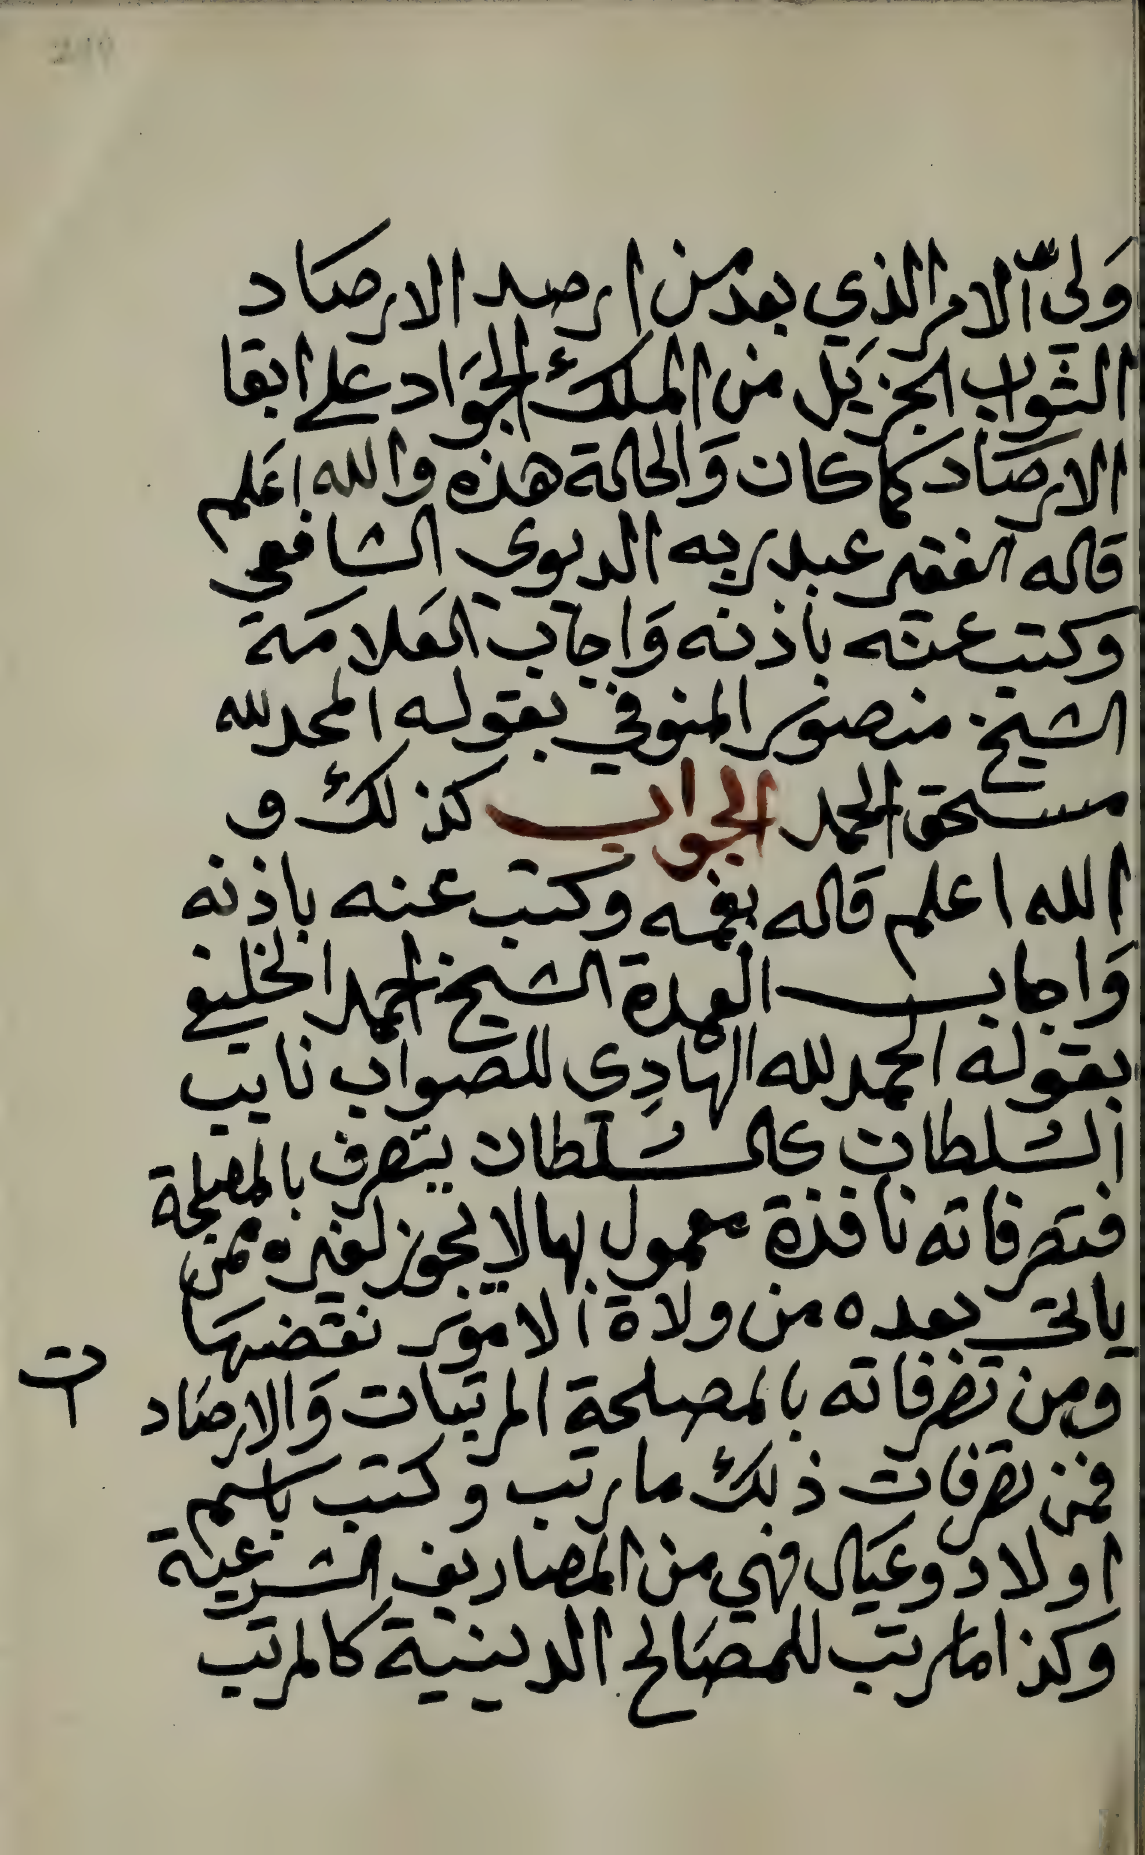 وَلىّ الامر الذي بعد من ارصد الارصاد
الثواب الجزيل من الملك الجوَاد على ابقا
الارصَاد كما كان وَالحالة هذه والله اعَلم
قاله الفقير عبد ربه الديوي الشافعي
وكتب عنه باذنه وَاجاب العَلامَة
الشيخ منصور المنوفي بقوله الحمد لله
مستحق الحمد الجواب كذلك و
الله اعلم قاله بفمه وكتب عنه باذنه
وَاجاب العمدة الشيخ احمد الخليفي
بقوله الحمد لله الهادِي للصواب نايب
السلطان كالسلطان يتصرف بالمصلحة
فتصرفاته نافذة معمول بها لا يجوز لغيره ممن
ياتى بعده من ولاة الامور نقضها
ومن تصرفاته بالمصلحة المرتبات وَالارصَاد
فمن تصرفات ذلك ما رتب وكتب باسم
اولاد وعيَال فهي من المصاريف الشرعية
وكذا ما رتب للمصَالح الدينية كالمرتب